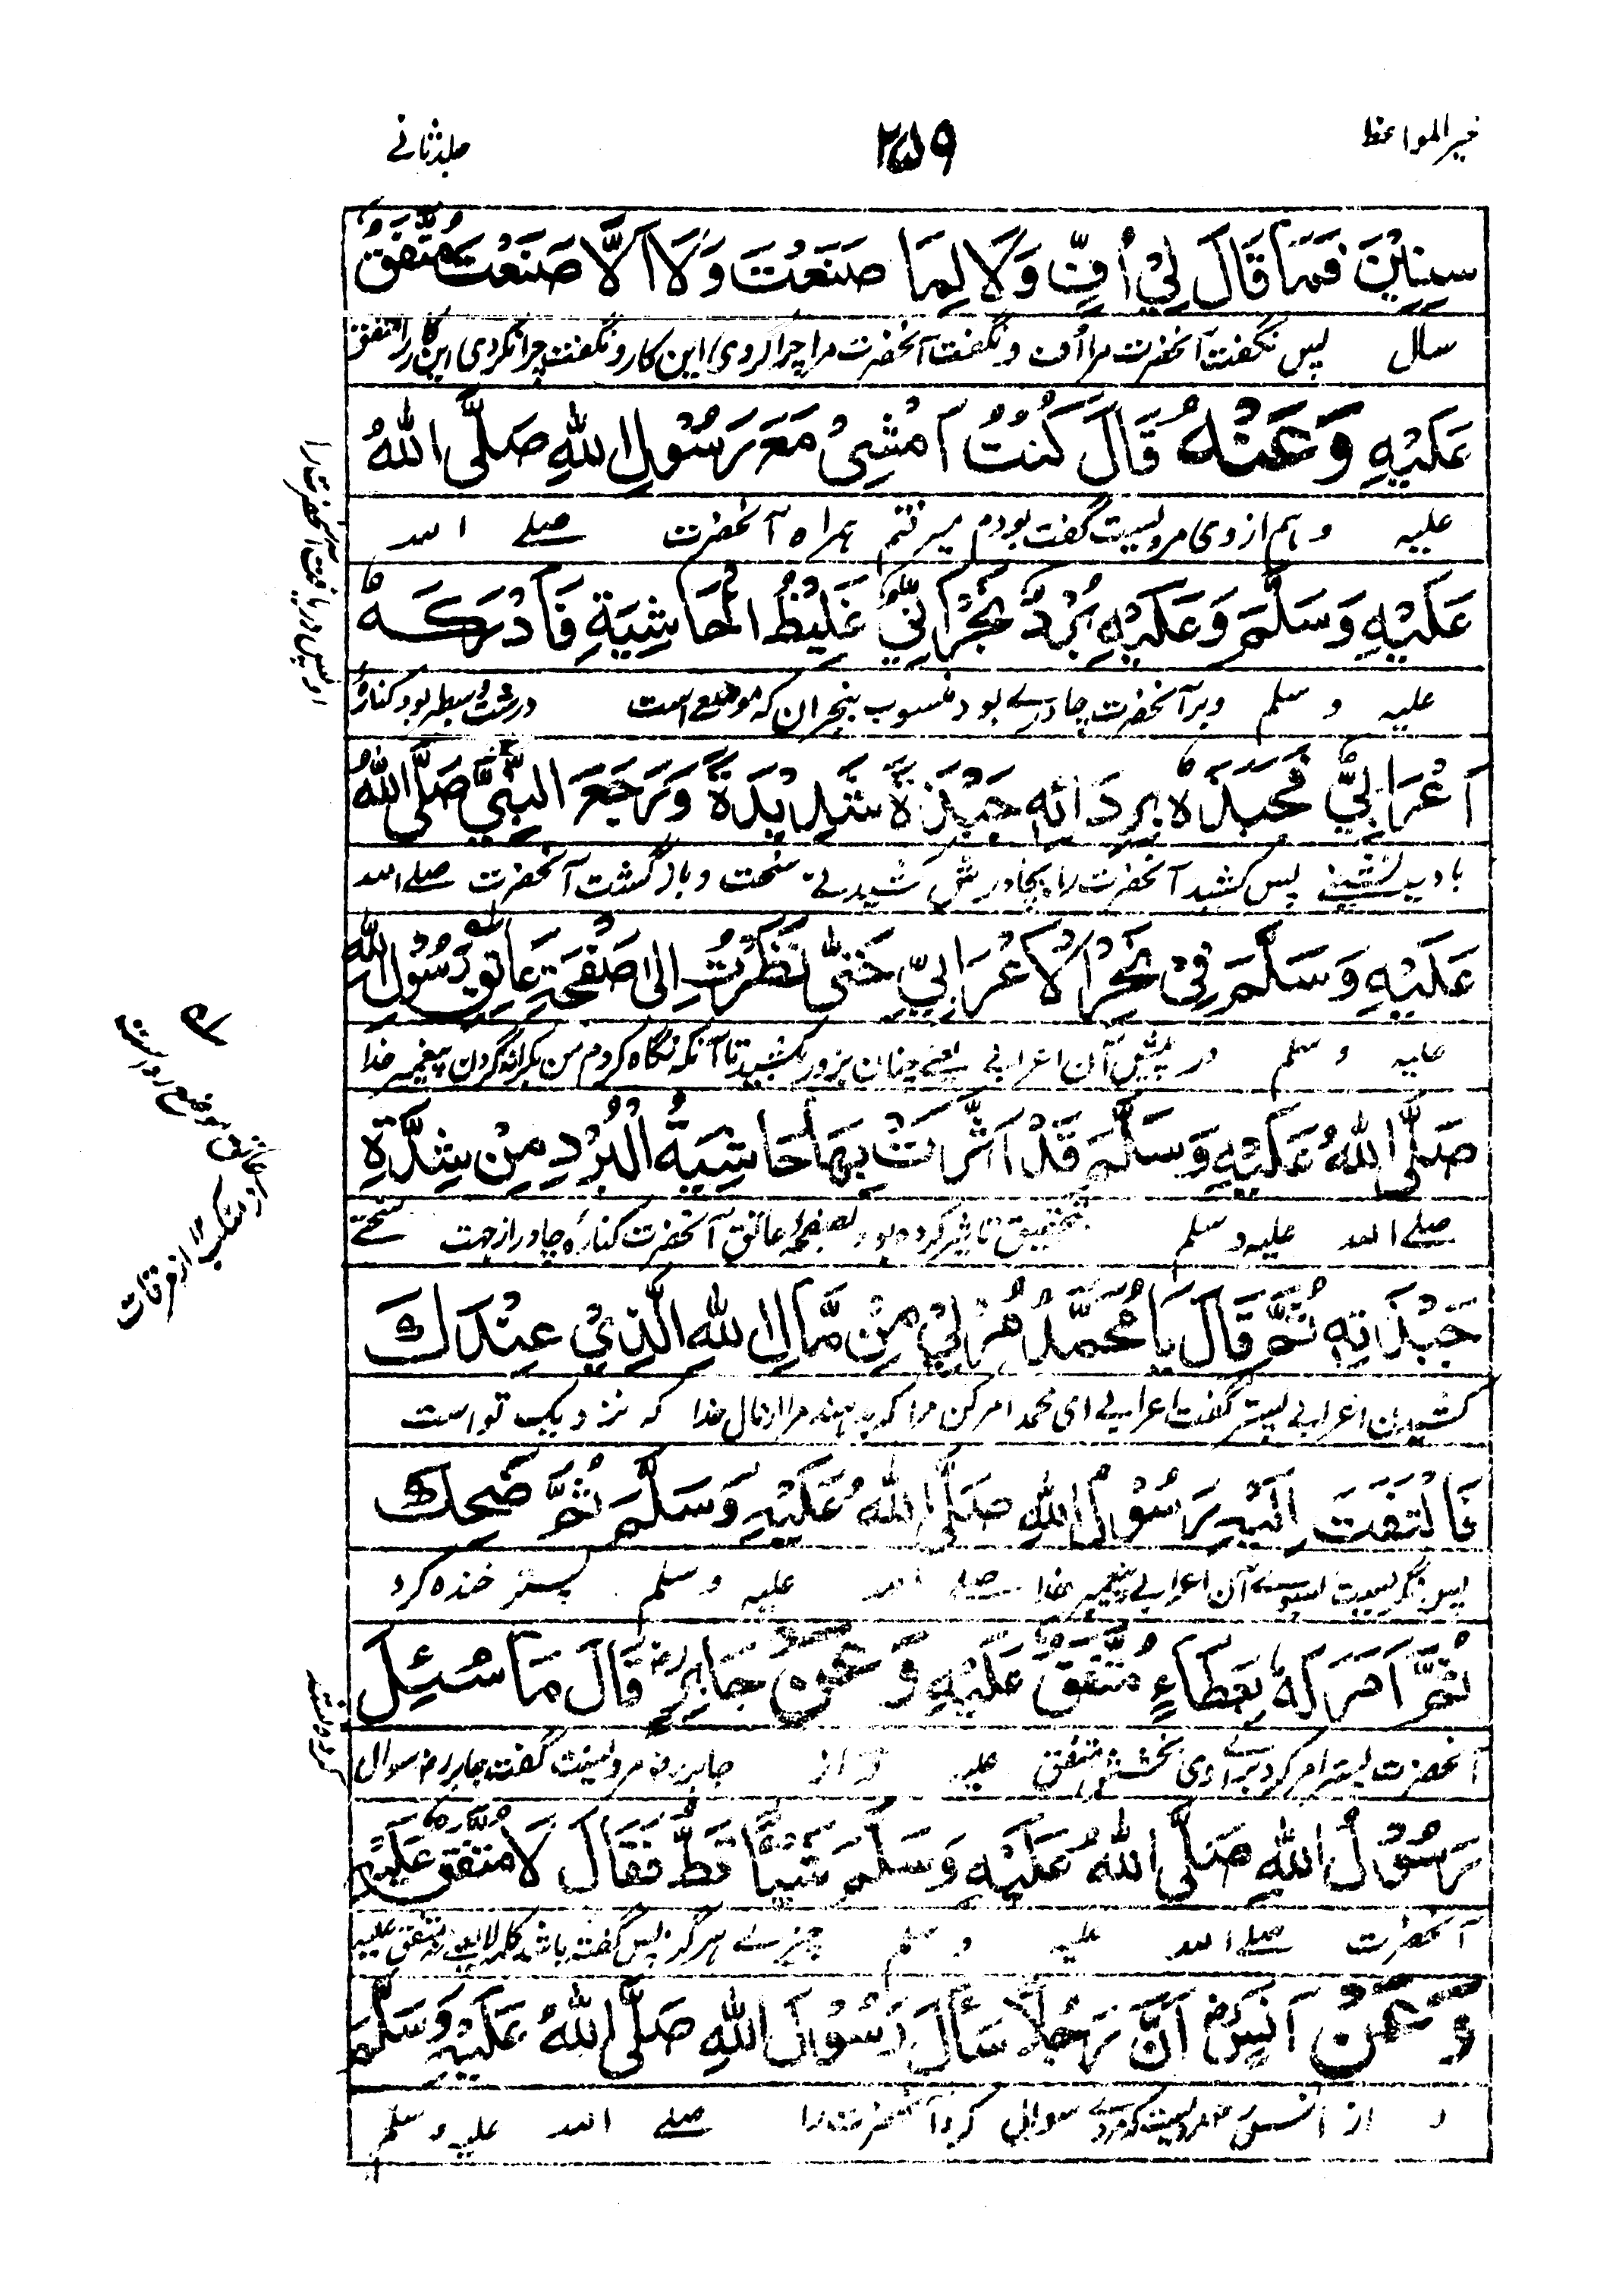 خیر المواعظ
۲۵۹
جلد ثانی
سِنِيْنَ فَمَا قَالَ لِيْ اُفٍّ وَلَا لِمَا صَنَعْتَ وَلَا اَلَّا صَنَعْتَ مُتَّفَقٌ
سال پس نگفت آنحضرت مرا اُف و نگفت آنحضرت مرا چرا کردی این کار و نگفت چرا نکردی این کار را متفق
عَلَيْهِ وَعَنْهُ قَالَ كُنْتُ اَمْشِيْ مَعَ رَسُوْلِ اللهِ صَلَّى اللهُ
علیه و هم از وی مرویست گفت بودم میرفتم همراه آنحضرت صلے الله
عَلَيْهِ وَسَلَّمَ وَعَلَيْهِ بُرْدٌ نَجْرَانِيٌّ غَلِيْظُ الْحَاشِيَةِ فَاَدْرَكَهٗ
علیه و سلم و بر آنحضرت چادرے بود منسوب بنجران که موضعی است درشت و سطبر بود کناره
اَعْرَابِيٌّ فَجَبَذَهٗ بِرِدَائِهٖ جَبْذَةً شَدِيْدَةً وَرَجَعَ النَّبِيُّ صَلَّى اللهُ
بادیه نشینے پس کشید آنحضرت را بچادرش کشیدنے سخت و بازگشت آنحضرت صلے الله
عَلَيْهِ وَسَلَّمَ فِيْ نَحْرِ الْاَعْرَابِيِّ حَتّٰى نَظَرْتُ اِلٰى صَفْحَةِ عَاتِقِ رَسُوْلِ اللهِ
علیه و سلم در پیش آن اعرابی یعنے چنان بزور کشید تا آنکه نگاه کردم من بکرانه گردن پیغمبر خدا
صَلَّى اللهُ عَلَيْهِ وَسَلَّمَ قَدْ اَثَّرَتْ بِهَا حَاشِيَةُ الْبُرْدِ مِنْ شِدَّةِ
صلے الله علیه و سلم بتحقیق تاثیر کرده بود بصفحۂ عاتق آنحضرت کنارۂ چادر از جهت سختے
جَبْذَتِهٖ ثُمَّ قَالَ يَا مُحَمَّدُ مُرْ لِيْ مِنْ مَّالِ اللهِ الَّذِيْ عِنْدَكَ
کشیدن اعرابی پستر گفت اعرابی ای محمد امر کن مرا که بدهند مرا از مال خدا که نزدیک تو است
فَالْتَفَتَ اِلَيْهِ رَسُوْلُ اللهِ صَلَّى اللهُ عَلَيْهِ وَسَلَّمَ ثُمَّ ضَحِكَ
پس نگریست بسوے آن اعرابی پیغمبر خدا صلے الله علیه و سلم پستر خنده کرد
ثُمَّ اَمَرَ لَهٗ بِعَطَاءٍ مُتَّفَقٌ عَلَيْهِ وَعَنْ جَابِرٍ رض قَالَ مَا سُئِلَ
آنحضرت پستر امر کرد براے وی بخشش متفق علیه و از جابر رض مرویست گفت جابر رض سوال
رَسُوْلُ اللهِ صَلَّى اللهُ عَلَيْهِ وَسَلَّمَ شَيْئًا قَطُّ فَقَالَ لَا مُتَّفَقٌ عَلَيْهِ
آنحضرت صلے الله علیه و سلم چیزے هرگز پس گفته باشد کلمه لا یعنے نه متفق علیه
وَعَنْ اَنَسٍ رض اَنَّ رَجُلًا سَأَلَ رَسُوْلَ اللهِ صَلَّى اللهُ عَلَيْهِ وَسَلَّمَ
و از انس رض مرویست که مردے سوال کرد آنحضرت را صلے الله علیه و سلم
او پس دریافت آنحضرت را
کرده نشد
از مرقات